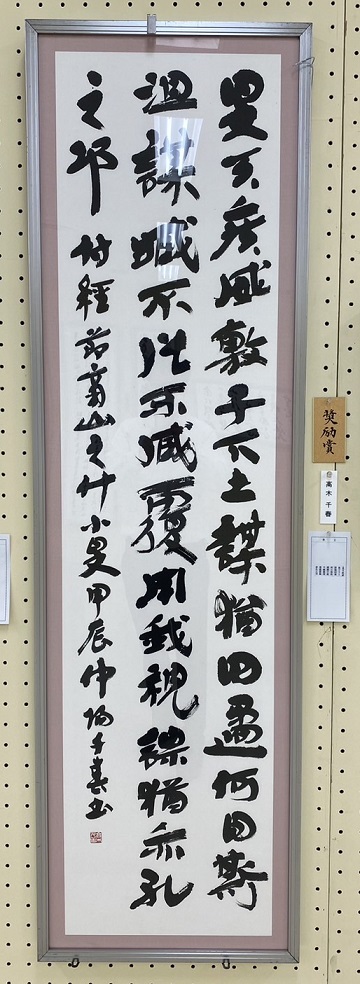 旻天疾威敷于下土謀猶回遹何日斯
沮謀臧不從不臧覆用我視謀猶亦孔
之邛 詩経 節南山之什小旻 甲辰仲陽千春書
奨励賞
高木千春